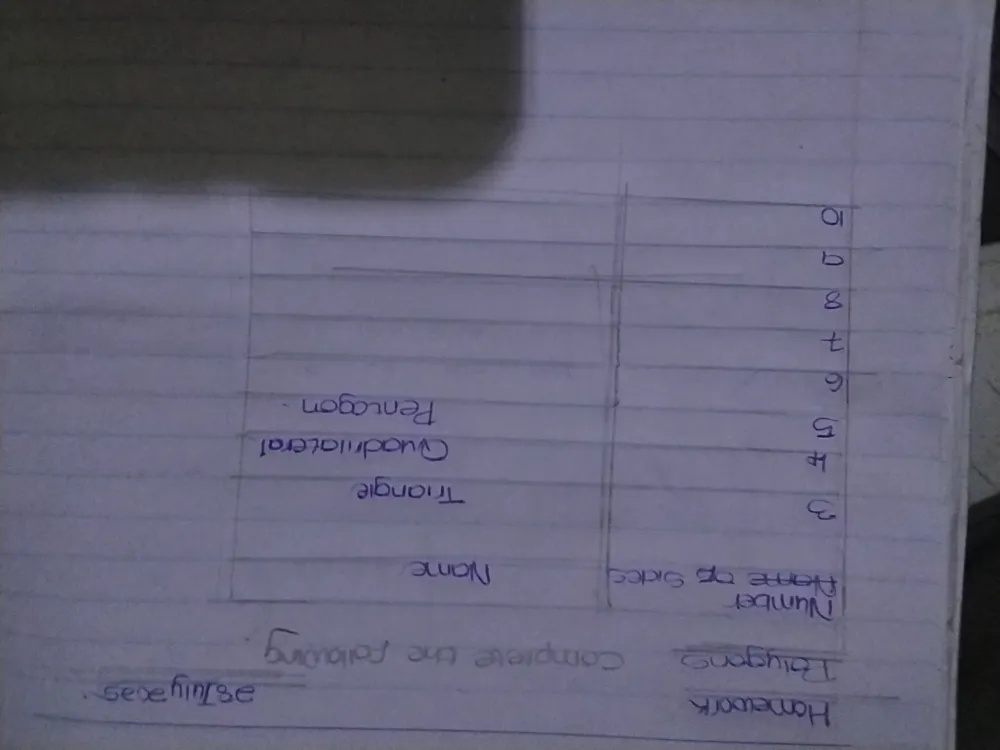 Homework 28 July 2025.
Polygons Complete the following.
Number
Name of Sides Name
3 Triangle
4 Quadrilateral
5 Pentagon.
6
7
8
9
10